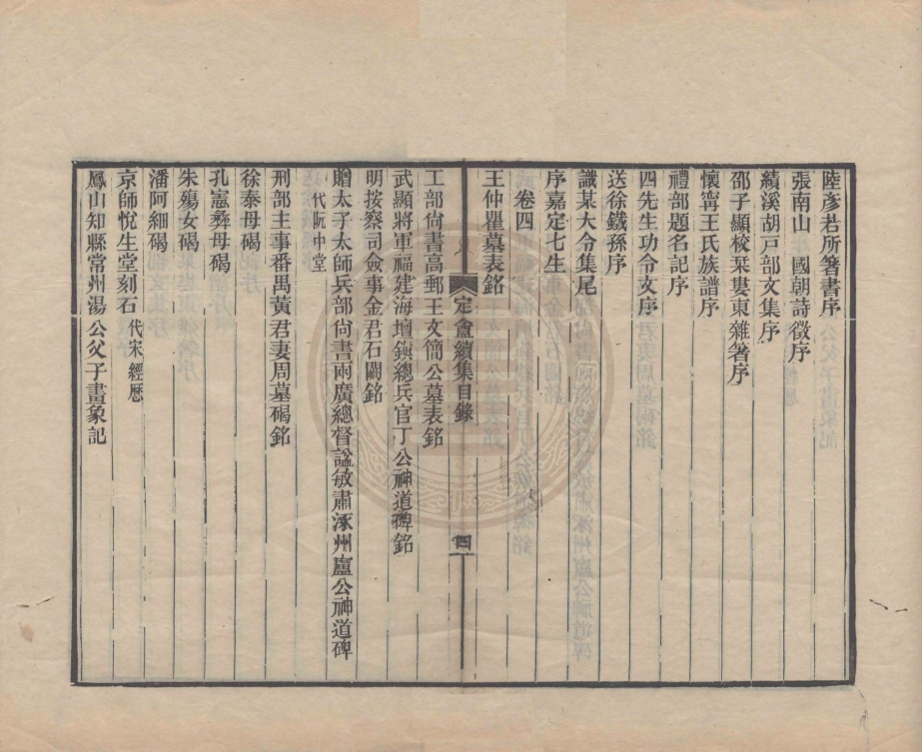 陸彥若所箸書序
張南山 國朝詩徵序
績溪胡戸部文集序
邵子顯校栞婁東雜箸序
懷寧王氏族譜序
禮部題名記序
四先生功令文序
送徐鐵孫序
識某大令集尾
序嘉定七生
卷四
王仲瞿墓表銘
定盦續集目錄
四
工部尙書高郵王文簡公墓表銘
武顯將軍福建海壇鎭總兵官丁公神道碑銘
明按察司僉事金君石闕銘
贈太子太師兵部尙書兩廣總督諡敏肅涿州盧公神道碑
代阮中堂
刑部主事番禺黃君妻周墓碣銘
徐泰母碣
孔憲彝母碣
朱殤女碣
潘阿細碣
京師悅生堂刻石 代宋經厯
鳳山知縣常州湯公父子畫象記